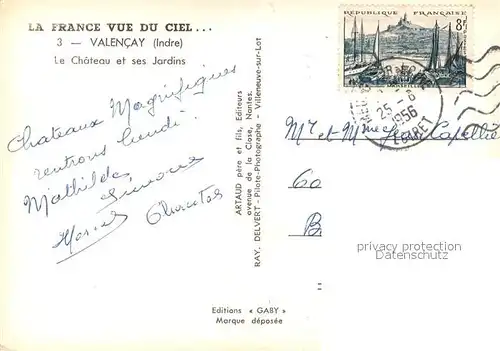 LA FRANCE VUE DU CIEL...
3 - VALENÇAY (Indre)
Le Château et ses Jardins
Chateaux Magnifiques
rentrons lundi.
Mathilde Simone
ARTAUD père et fils, Editeurs
avenue de la Close, Nantes.
RAY. DELVERT - Pilote-Photographe - Villeneuve-sur-Lot
Editions « GABY »
Marque déposée
RÉPUBLIQUE FRANÇAISE
8F
25-6
1956
LOIRET
Mr et Mme
60
B
privacy protection
AnsichtskartenVersand.com